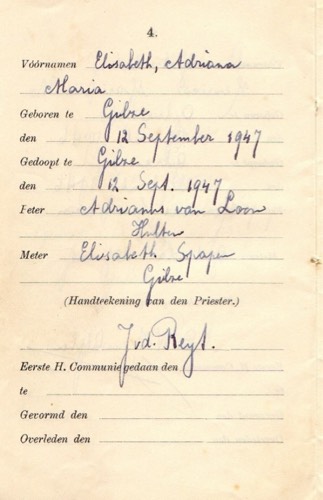 4.
Vóórnamen Elisabeth, Adriana
Maria
Geboren te Gilze
den 12 September 1947
Gedoopt te Gilze
den 12 Sept. 1947
Peter Adrianus van Loon
Hulten
Meter Elisabeth Spapen
Gilze
(Handtrekening van den Priester.)
J vd. Reyt.
Eerste H. Communie gedaan den
te
Gevormd den
Overleden den